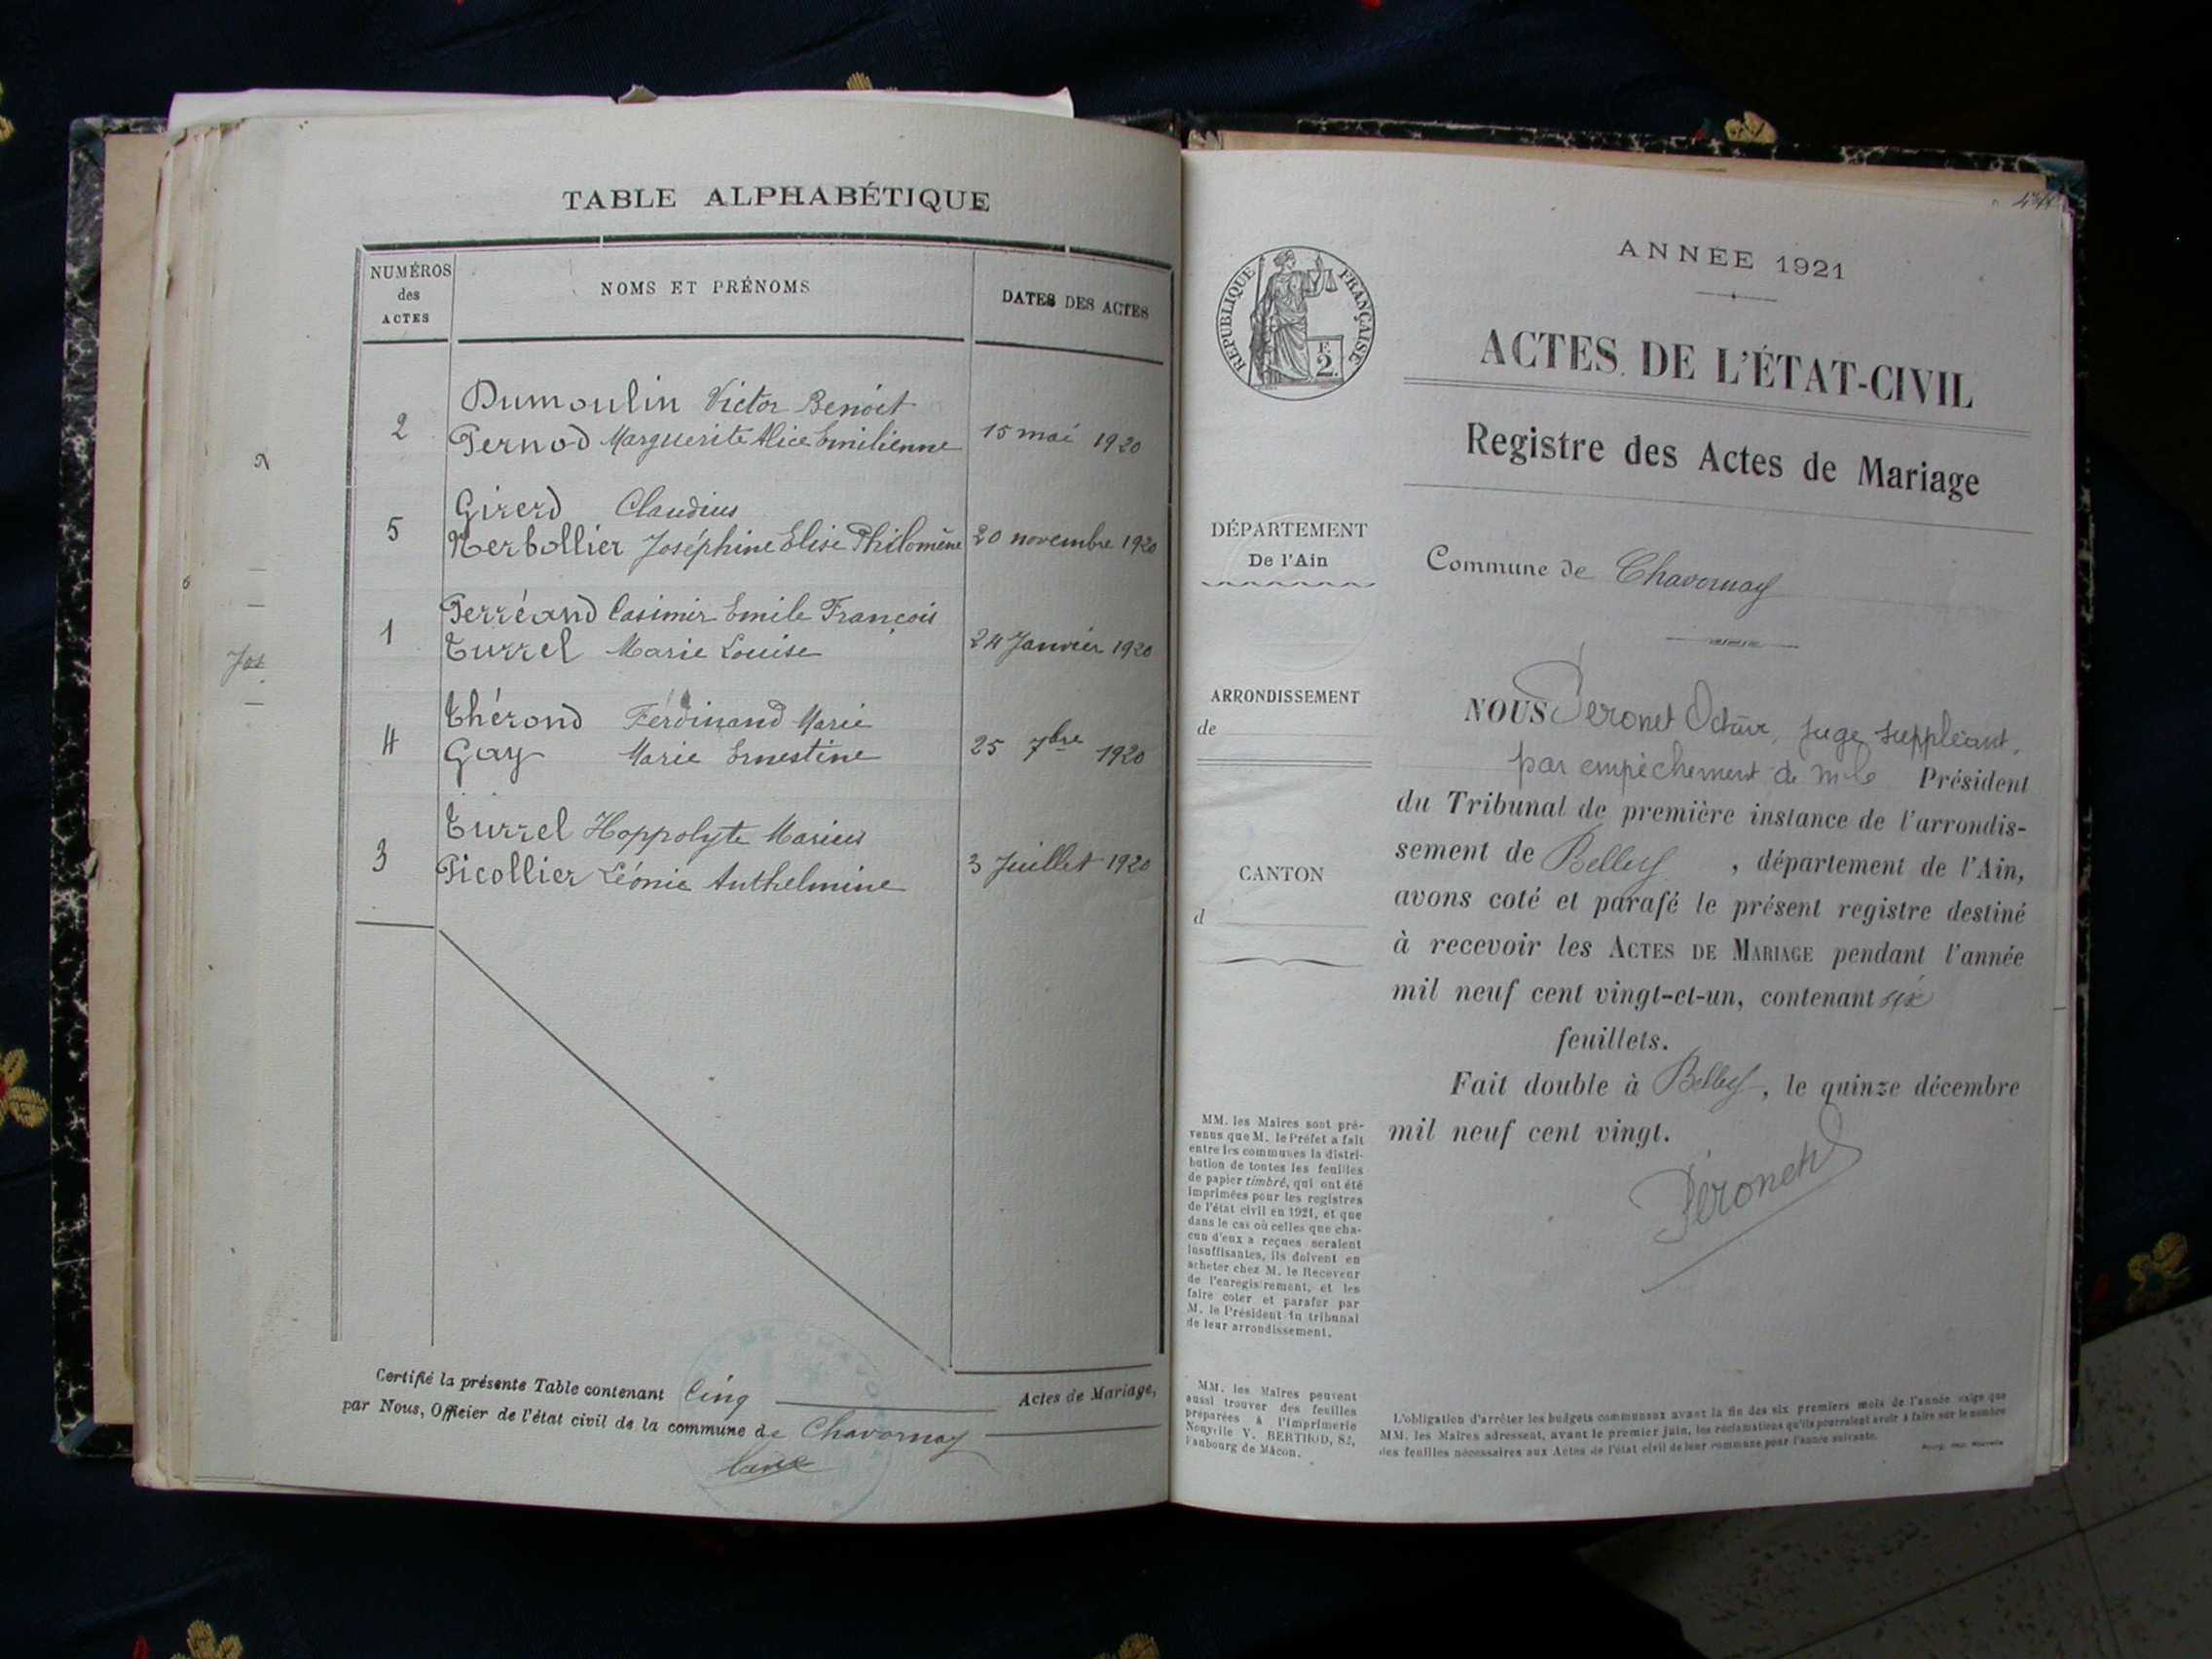 TABLE ALPHABÉTIQUE
NUMÉROS
des
ACTES
NOMS ET PRÉNOMS
DATES DES ACTES
Dumoulin Victor Benoit
2 Pernod Marguerite Alice Emilienne 15 mai 1920
Girerd Claudius
5 Herbollier Joséphine Elise Philomène 20 novembre 1920
Perréand Casimir Emile François
1 Turrel Marie Louise 24 Janvier 1920
Thérond Ferdinand Marie
4 Gay Marie Ernestine 25 7bre 1920
Turrel Hoppolyte Marius
3 Picollier Léonie Anthelmine 3 Juillet 1920
Certifié la présente Table contenant Cinq Actes de Mariage,
par Nous, Officier de l'état civil de la commune de Chavornay
Jos
ANNÉE 1921
RÉPUBLIQUE FRANÇAISE
2
ACTES DE L'ÉTAT-CIVIL
Registre des Actes de Mariage
DÉPARTEMENT
De l'Ain
Commune de Chavornay
ARRONDISSEMENT
de
CANTON
d
NOUS Peronet Octave, juge suppléant,
par empêchement de Mr le Président
du Tribunal de première instance de l'arrondis-
sement de Belley, département de l'Ain,
avons coté et parafé le présent registre destiné
à recevoir les ACTES DE MARIAGE pendant l'année
mil neuf cent vingt-et-un, contenant six
feuillets.
Fait double à Belley, le quinze décembre
mil neuf cent vingt.
Péronet
MM. les Maires sont pré-
venus que M. le Préfet a fait
entre les communes la distri-
bution de toutes les feuilles
de papier timbré, qui ont été
imprimées pour les registres
de l'état civil en 1921, et que
dans le cas où celles que cha-
cun d'eux a reçues seraient
insuffisantes, ils doivent en
acheter chez M. le Receveur
de l'enregistrement, et les
faire coter et parafer par
M. le Président du tribunal
de leur arrondissement.
MM. les Maires peuvent
aussi trouver des feuilles
préparées à l'Imprimerie
Nouvelle V. BERTHOD, 82,
Faubourg de Mâcon.
L'obligation d'arrêter les budgets communaux avant la fin des six premiers mois de l'année exige que
MM. les Maires adressent, avant le premier juin, les réclamations qu'ils pourraient avoir à faire sur le nombre
des feuilles nécessaires aux Actes de l'état civil de leur commune pour l'année suivante.